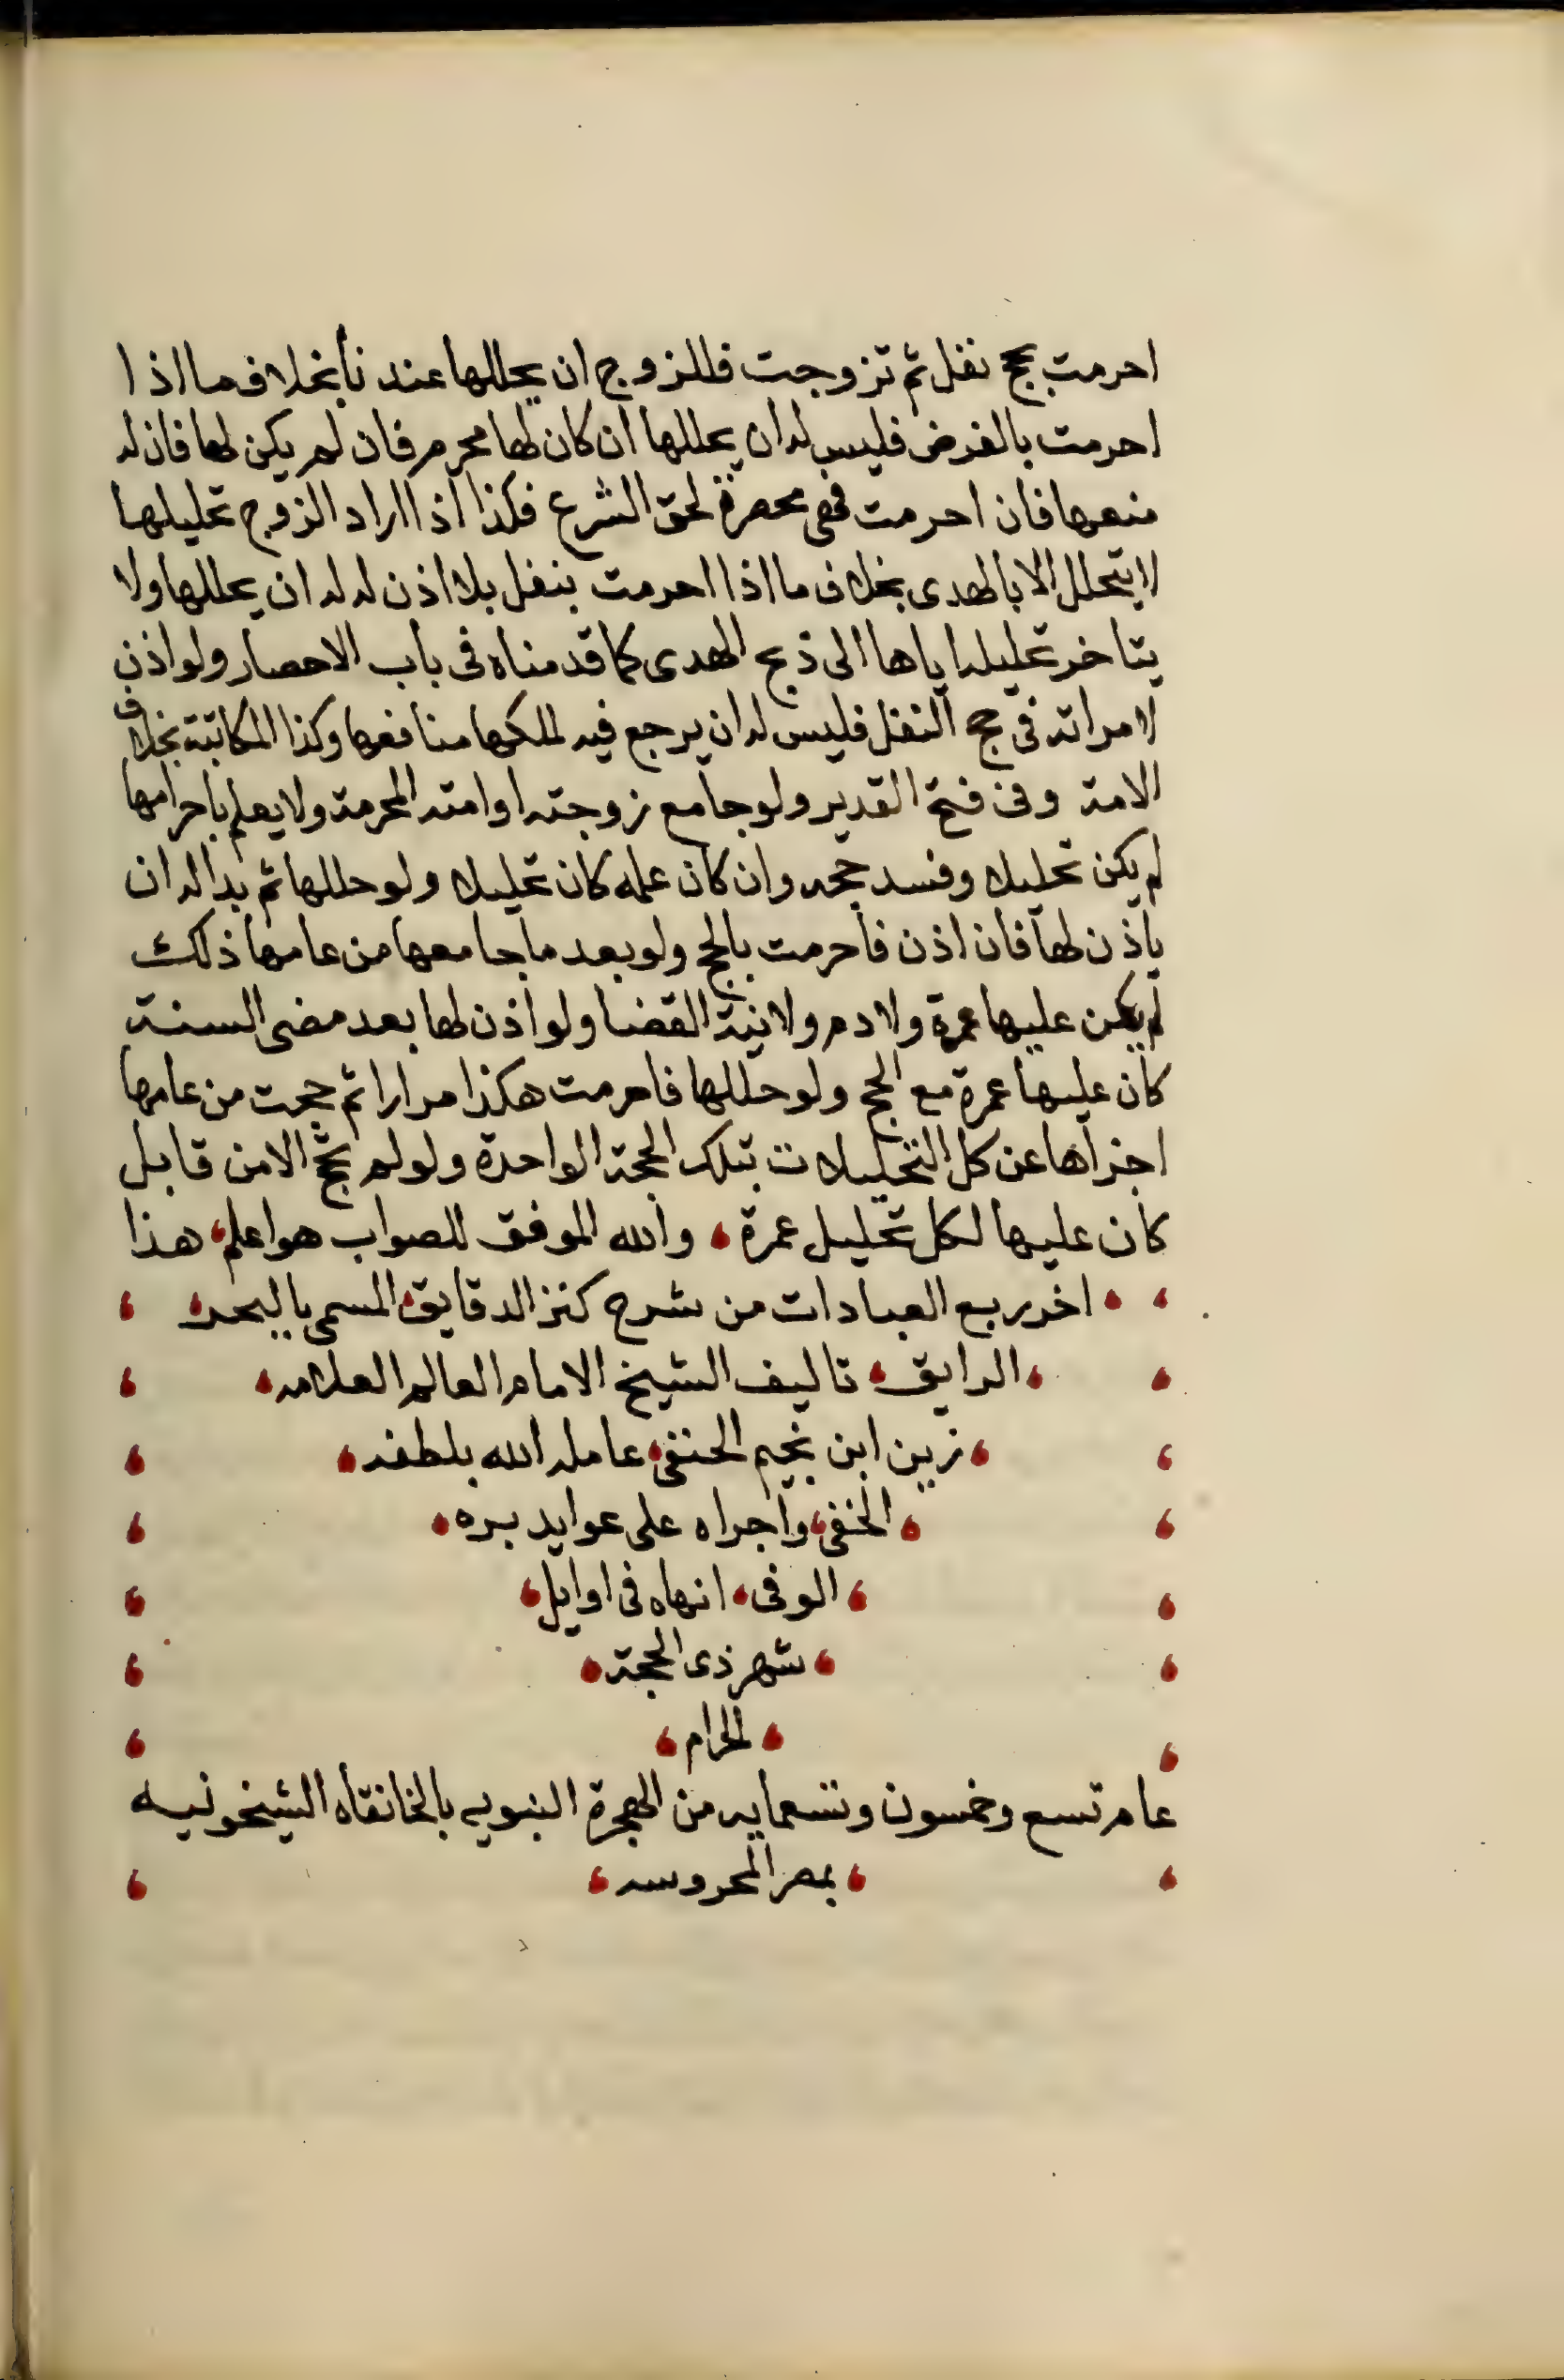 احرمت بحج نفل ثم تزوجت فللزوج ان يحللها عندنا بخلاف ما اذا
احرمت بالفرض فليس له ان يحللها ان كان لها محرم فان لم يكن لها فان له
منعها فان احرمت فهى محصرة لحق الشرع فلذا اذا اراد الزوج تحليلها
لا يتحلل الا بالهدى بخلاف ما اذا احرمت بنفل بلا اذن له له ان يحللها ولا
يتاخر تحليله اياها الى ذبح الهدى كما قدمناه فى باب الاحصار ولو اذن
لامراته فى حج النفل فليس له ان يرجع فيه لملكها منافعها وكذا المكاتبة بخلاف
الامة وفى فتح القدير ولو جامع زوجته او امته المحرمة ولا يعلم باحرامها
لم يكن تحليلا وفسد حجه وان كان علمه كان تحليلا ولو حللها ثم بدا له ان
ياذن لها فان اذن فاحرمت بالحج ولو بعد ما جامعها من عامها ذلك
لم يكن عليها عمرة ولا دم ولا نية القضا ولو اذن لها بعد مضى السنة
كان عليها عمرة مع الحج ولو حللها فاحرمت هكذا مرارا ثم حجت من عامها
اجزاها عن كل التحليلات بتلك الحجة الواحدة ولو لم تحج الا من قابل
كان عليها لكل تحليل عمرة، والله الموفق للصواب هو اعلم، هذا
اخر ربع العبادات من شرح كنز الدقايق، المسمى بالبحر،
،الرايق، تاليف الشيخ الامام العالم العلامه،
،زين ابن نجيم الحنفى، عامله الله بلطفه،
،الخفى، واجراه على عوايد بره،
،الوفى، انهاه فى اوايل،
،شهر ذى الحجة،
،الحرام،
عام تسع وخمسون وتسعمايه من الهجرة النبويه بالخانقاه الشيخونيه
،بمصر المحروسه،